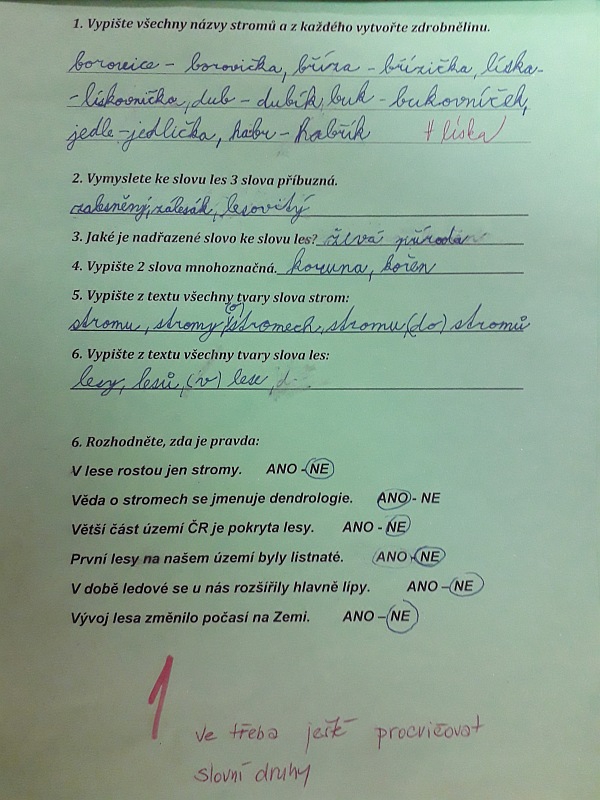 1. Vypište všechny názvy stromů a z každého vytvořte zdrobnělinu.
borovice - borovička, bříza - břízička, líska-
- lískovnička, dub - dubík, buk - bukovníček,
jedle - jedlička, habr - habřík + líska
2. Vymyslete ke slovu les 3 slova příbuzná.
zalesněný, zálesák, lesovitý
3. Jaké je nadřazené slovo ke slovu les? živá příroda
4. Vypište 2 slova mnohoznačná. koruna, kořen
5. Vypište z textu všechny tvary slova strom:
stromu, stromy, (o) stromech, stromu (do) stromů
6. Vypište z textu všechny tvary slova les:
lesy, lesů, (v) lese,
6. Rozhodněte, zda je pravda:
V lese rostou jen stromy. ANO - NE
Věda o stromech se jmenuje dendrologie. ANO - NE
Větší část území ČR je pokryta lesy. ANO - NE
První lesy na našem území byly listnaté. ANO - NE
V době ledové se u nás rozšířily hlavně lipy. ANO – NE
Vývoj lesa změnilo počasí na Zemi. ANO – NE
1
ve třeba ještě procvičovat
slovní druhy